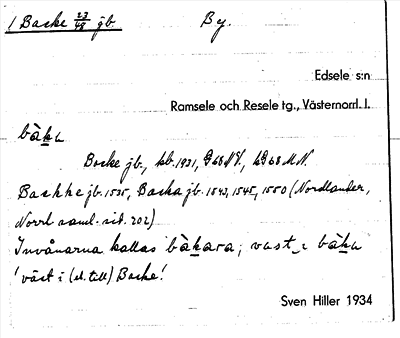 1 Backe 23/48 jb. By.
Edsele s:n
Ramsele och Resele tg., Västernorrl. l.
bàka
Backe jb., kb. 1931, G 68 NV., kG 68 M.N.
Backke jb. 1535, Backa jb. 1543, 1545, 1550 (Nordlander,
Norrl. saml. sid. 202)
Invånarna kallas bàkara; vast i bàka
'väst i (el. till) Backe'.
Sven Hiller 1934